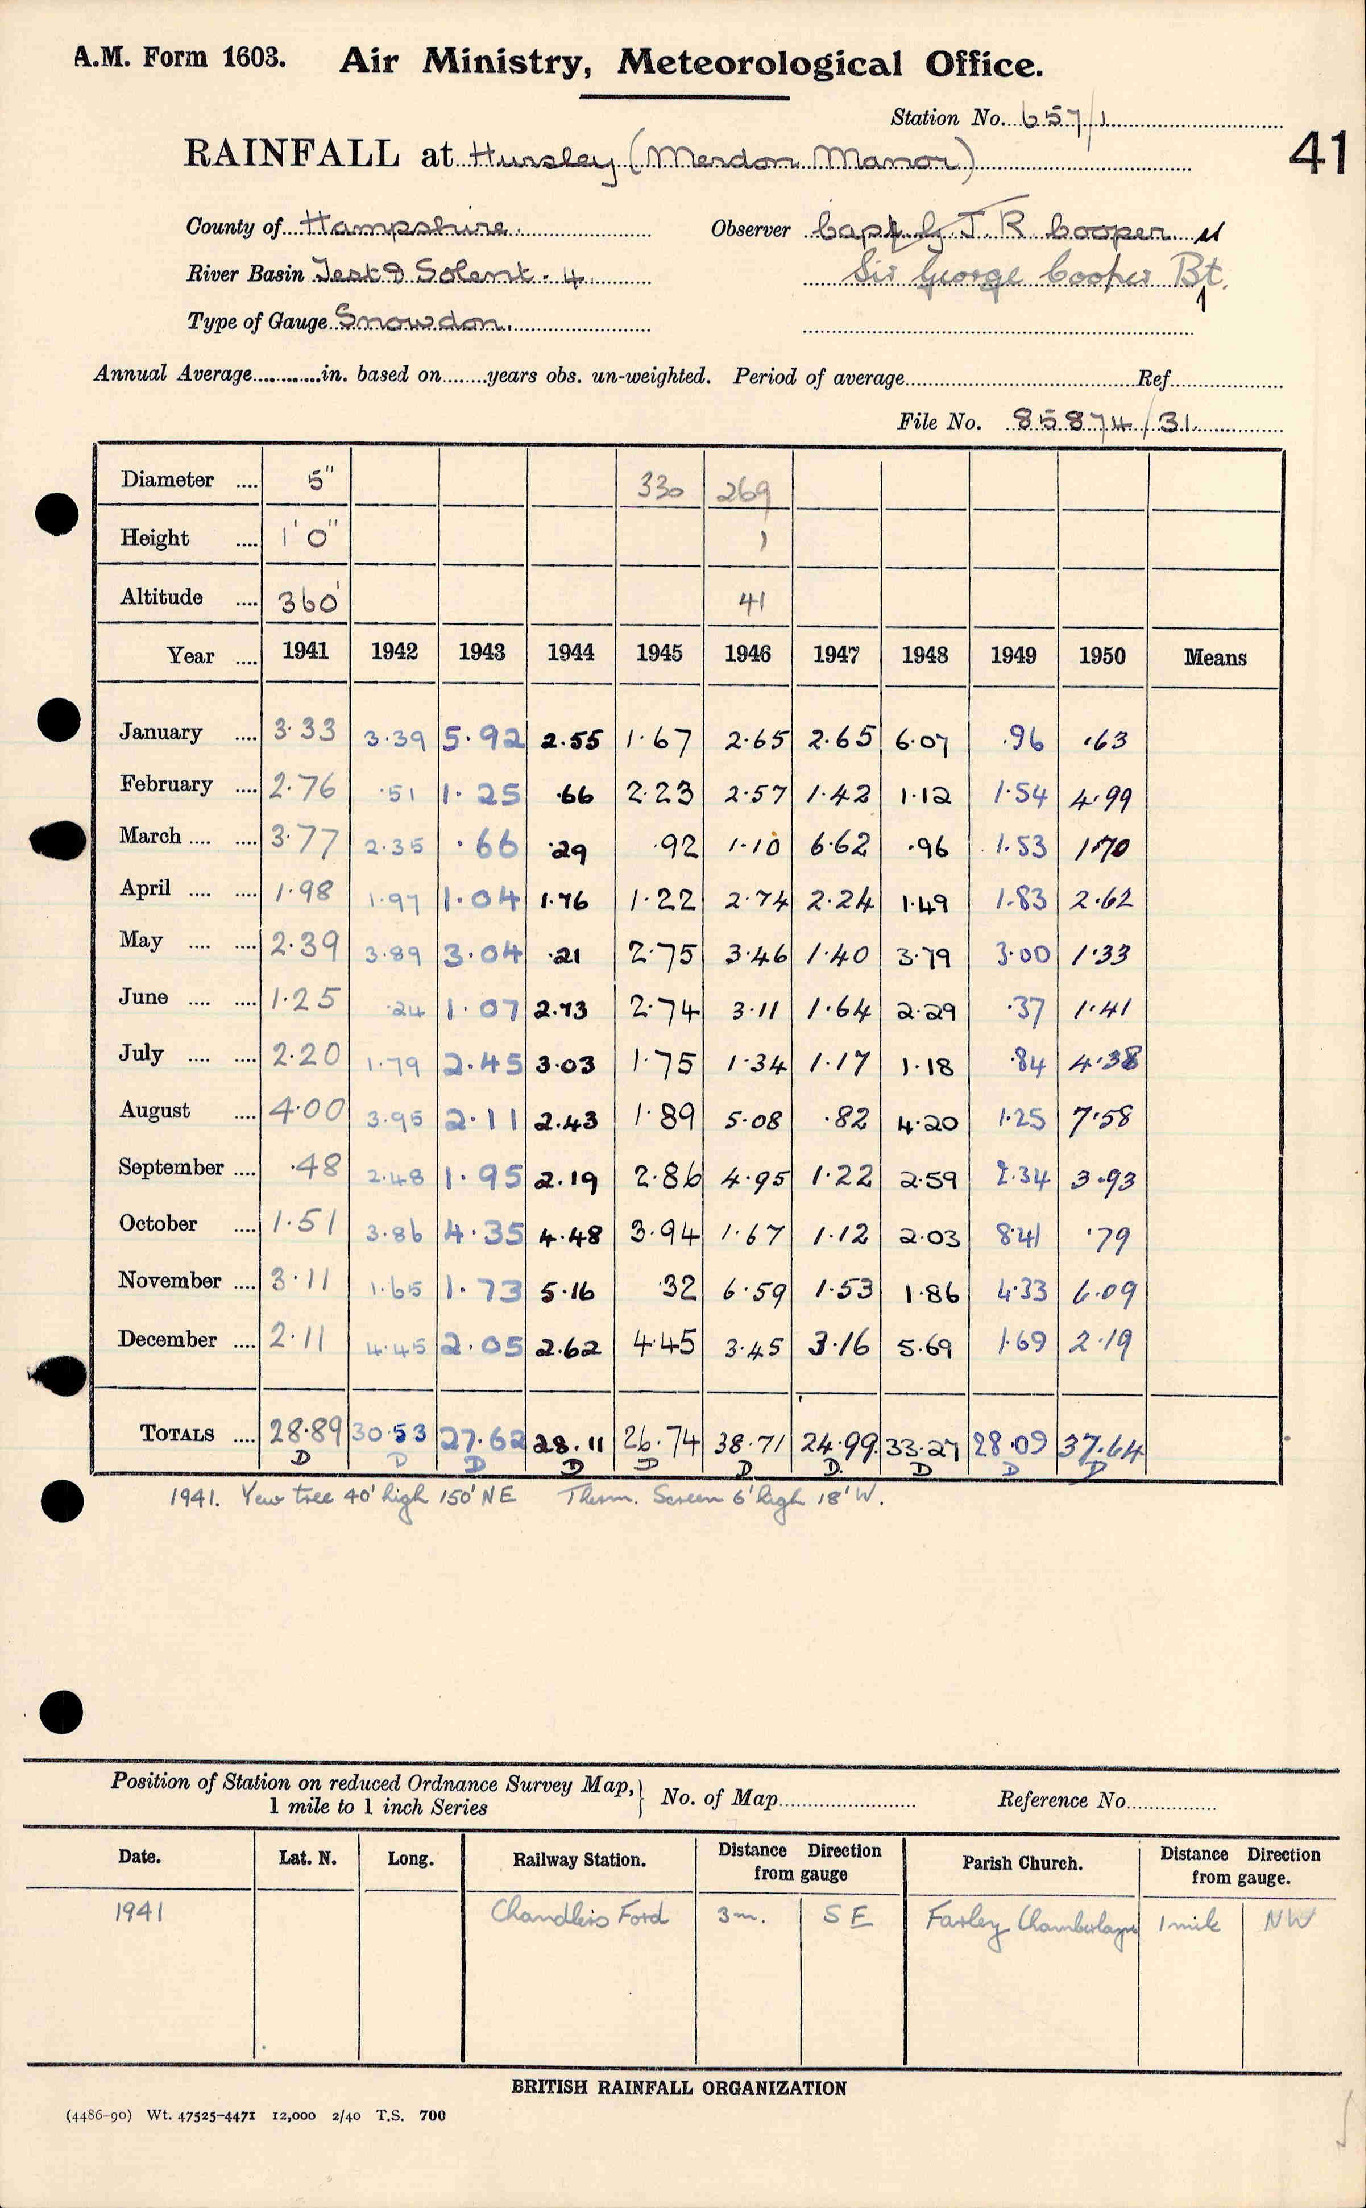 A.M. Form 1603. Air Ministry, Meteorological Office.
Station No. 657/1
41
RAINFALL at Hursley (Merdon Manor)
County of Hampshire. Observer Capt G. J. R Cooper
River Basin Test & Solent - 4 Sir George Cooper Bt.
Type of Gauge Snowdon.
Annual Average............in. based on........years obs. un-weighted. Period of average........ Ref........
File No. 85874/31
Diameter .... 5" 330 269
Height .... 1'0" 1
Altitude .... 360' 41
Year .... 1941 1942 1943 1944 1945 1946 1947 1948 1949 1950 Means
January .... 3.33 3.39 5.92 2.55 1.67 2.65 2.65 6.07 .96 .63
February .... 2.76 .51 1.25 .66 2.23 2.57 1.42 1.12 1.54 4.99
March .... .... 3.77 2.35 .66 .29 .92 1.10 6.62 .96 1.53 1.70
April .... .... 1.98 1.97 1.04 1.76 1.22 2.74 2.24 1.49 1.83 2.62
May .... .... 2.39 3.89 3.04 .21 2.75 3.46 1.40 3.79 3.00 1.33
June .... .... 1.25 .24 1.07 2.73 2.74 3.11 1.64 2.29 .37 1.41
July .... .... 2.20 1.79 2.45 3.03 1.75 1.34 1.17 1.18 .84 4.38
August .... 4.00 3.95 2.11 2.43 1.89 5.08 .82 4.20 1.25 7.58
September .... .48 2.48 1.95 2.19 2.86 4.95 1.22 2.59 2.34 3.93
October .... 1.51 3.86 4.35 4.48 3.94 1.67 1.12 2.03 8.41 .79
November .... 3.11 1.65 1.73 5.16 .32 6.59 1.53 1.86 4.33 6.09
December .... 2.11 4.45 2.05 2.62 4.45 3.45 3.16 5.69 1.69 2.19
TOTALS .... 28.89 30.53 27.62 28.11 26.74 38.71 24.99 33.27 28.09 37.64
D D D D D D D. D D D
1941. Yew tree 40' high 150' NE Therm. Screen 6' high 18' W.
Position of Station on reduced Ordnance Survey Map, } No. of Map........ Reference No........
1 mile to 1 inch Series
Date. Lat. N. Long. Railway Station. Distance Direction from gauge Parish Church. Distance Direction from gauge.
1941 Chandlers Ford 3m. SE Farley Chamberlayne 1 mile NW
BRITISH RAINFALL ORGANIZATION
(4486-90) Wt. 47525-4471 12,000 2/40 T.S. 700